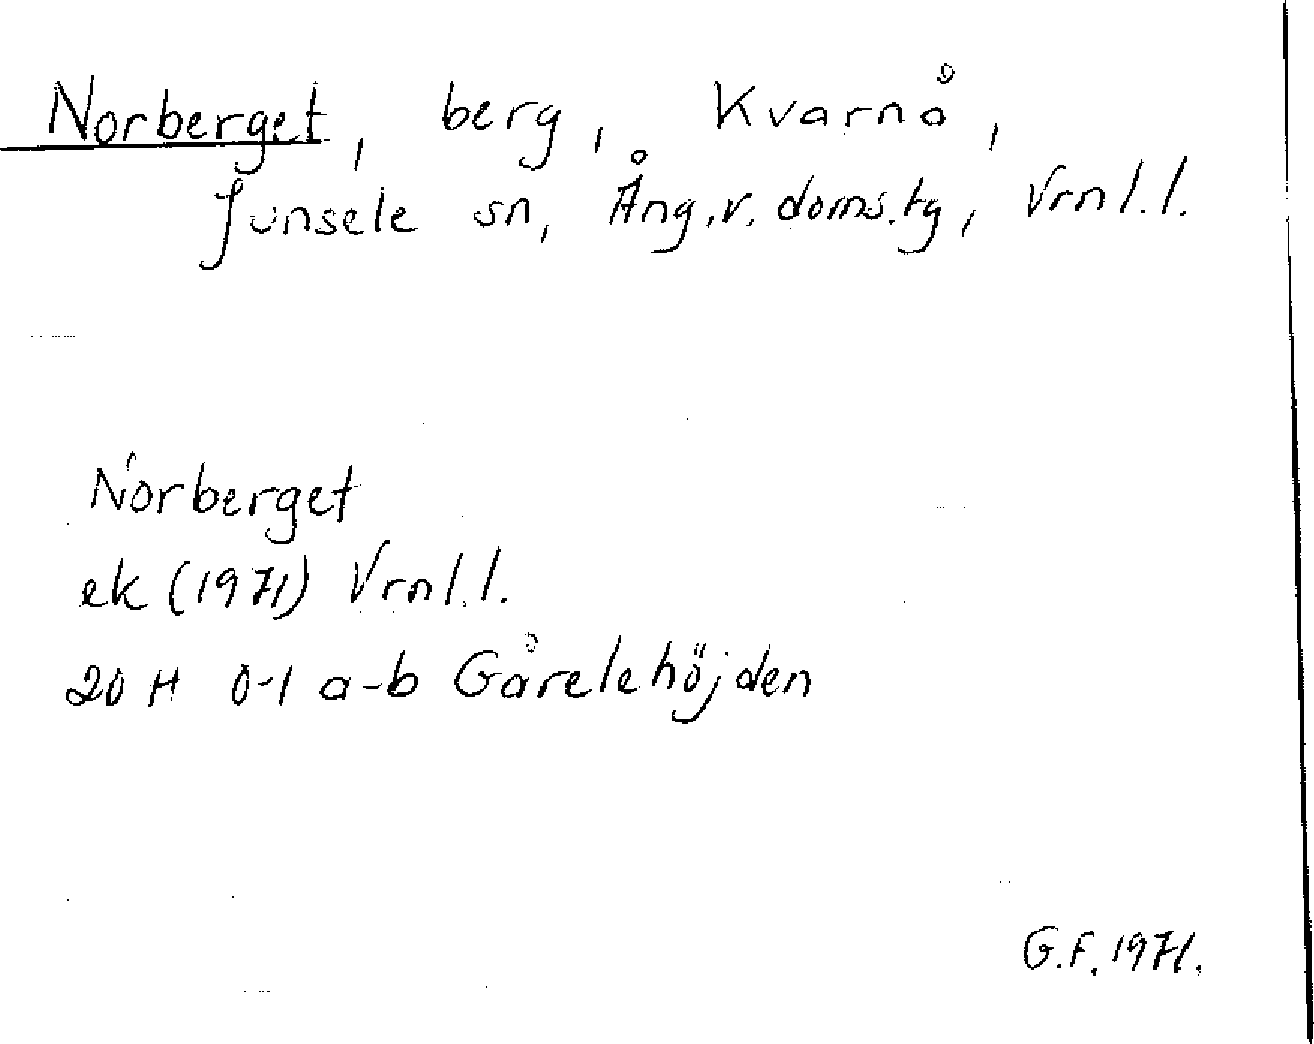 Norberget, berg, Kvarnå,
Junsele sn, Ång.v. doms.tg, Vrnl.l.
Norberget
ek (1971) Vrnl.l.
20 H 0-1 a-b Gårelehöjden
G.F. 1971.